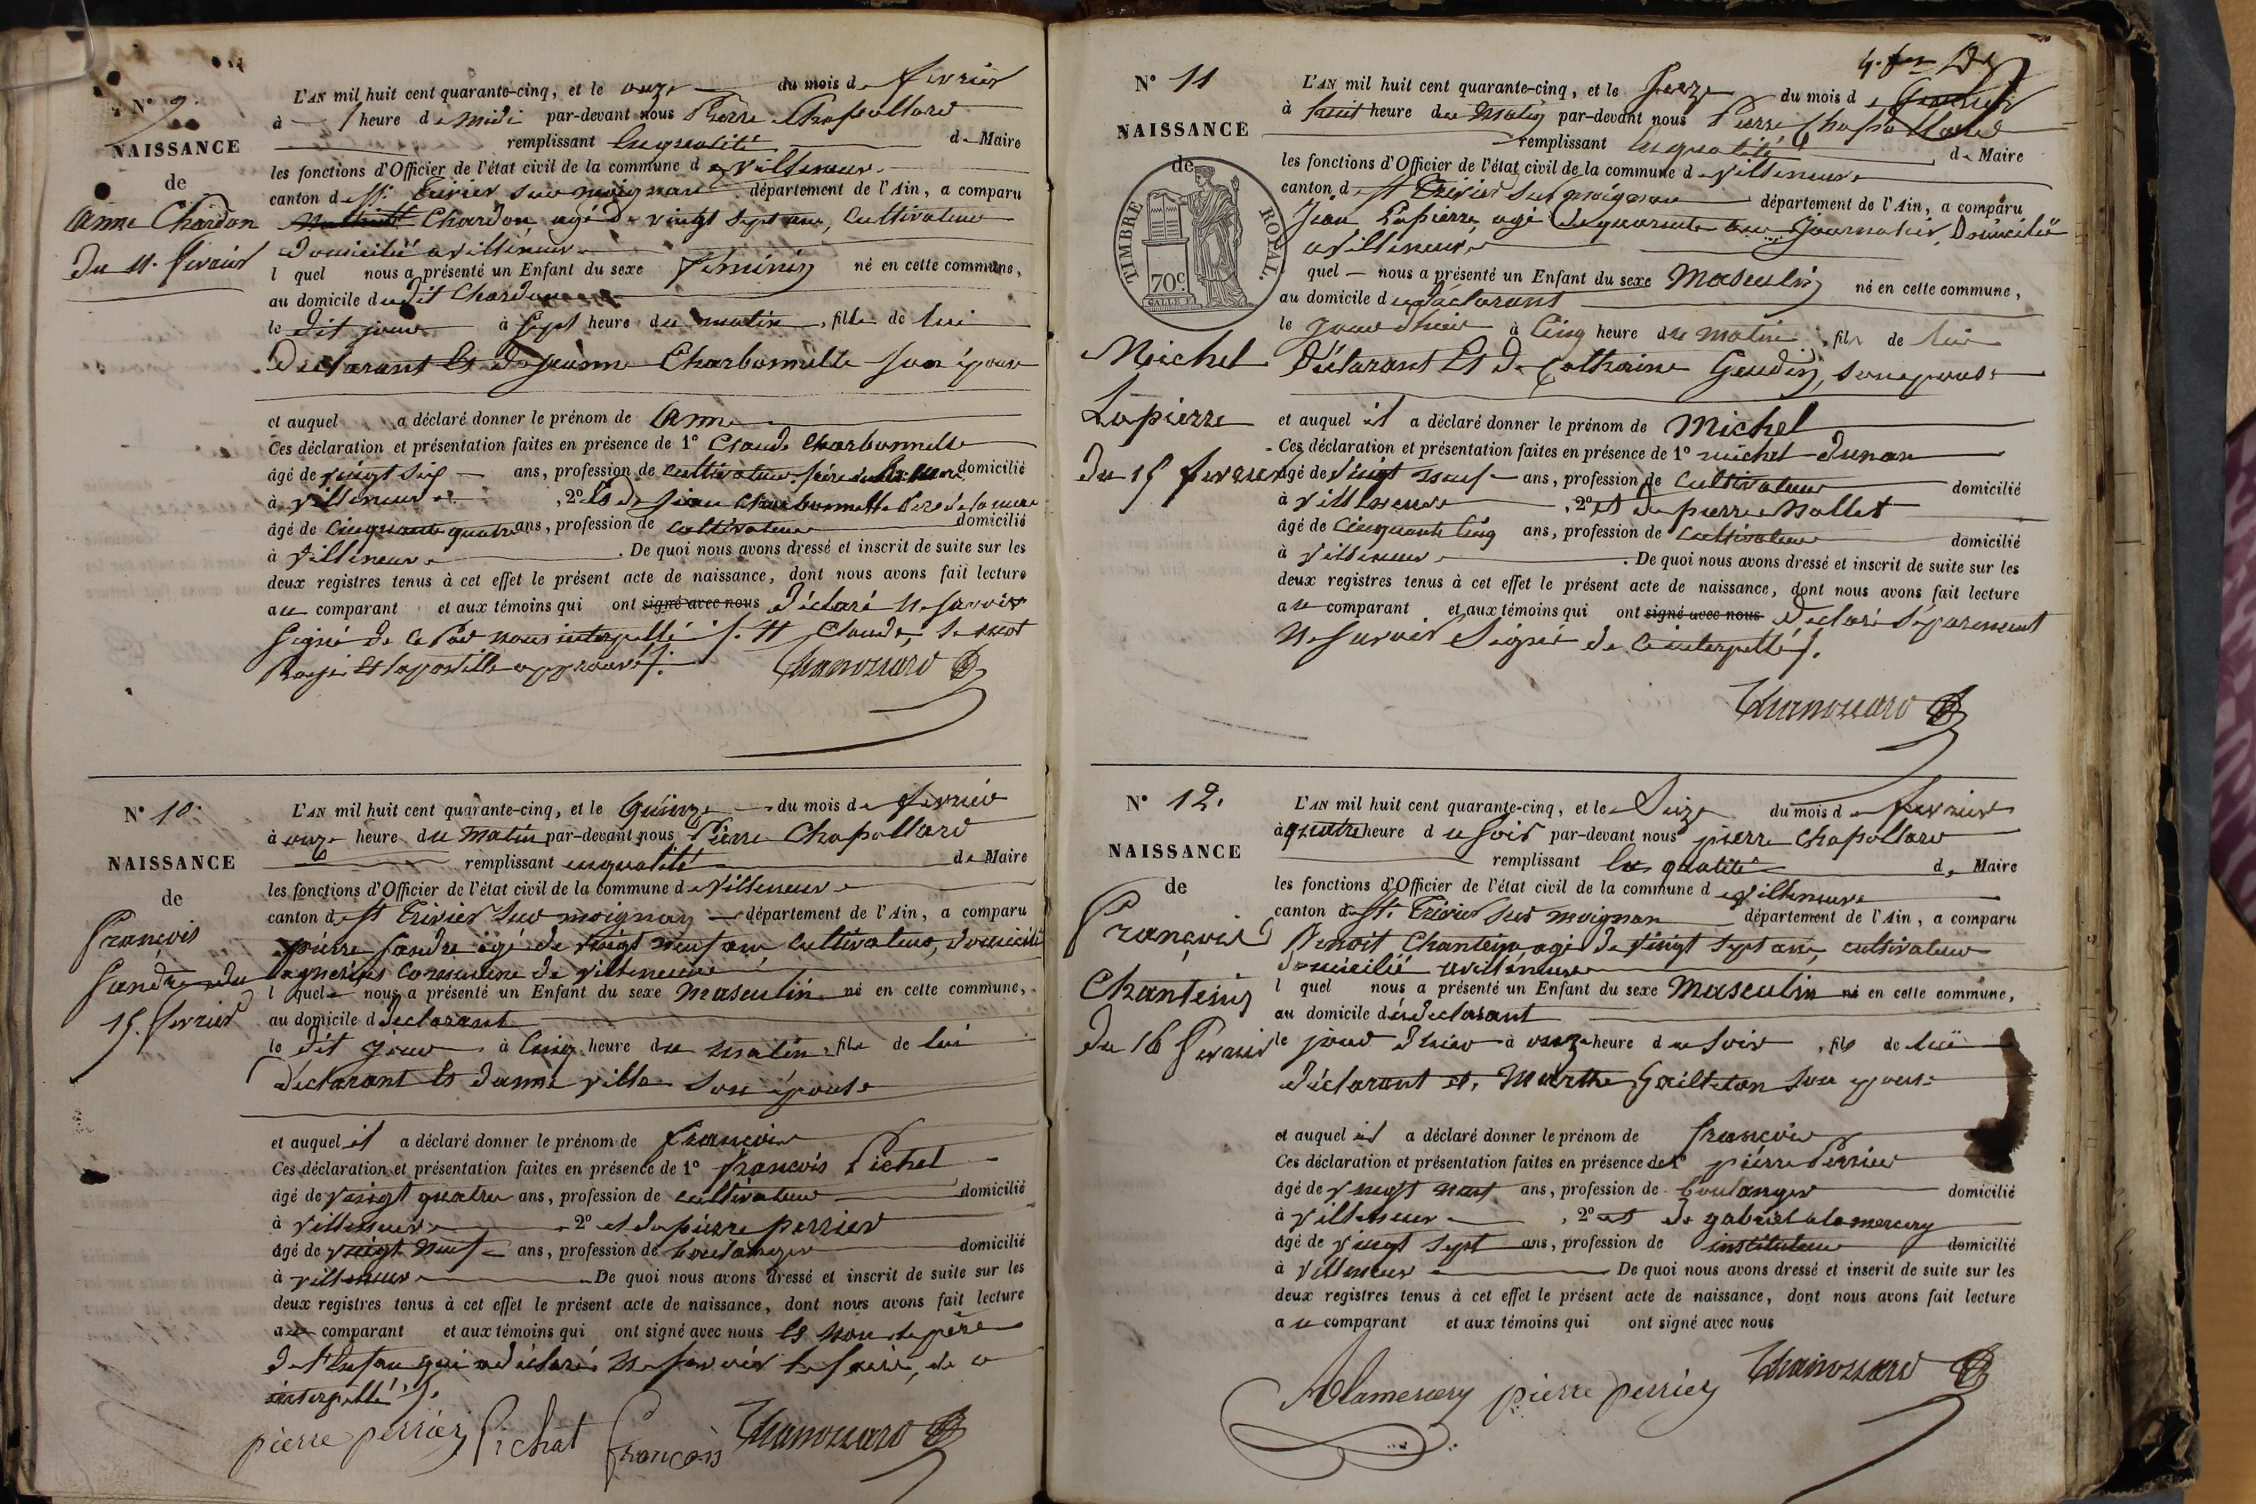 N° 9.
NAISSANCE
de
Anne Chardon
du 11. fevrier
L'AN mil huit cent quarante-cinq, et le onze du mois de fevrier
à 1 heure de midi par-devant nous Pierre Chapollard
remplissant en qualité de Maire
les fonctions d'Officier de l'état civil de la commune de villeneuve
canton de St. Trivier sur moignans département de l'Ain, a comparu
Chardon agé de vingt sept ans, cultivateur
domicilié a villeneuve
l quel nous a présenté un Enfant du sexe féminin né en cette commune,
au domicile dudit Chardon
le dit jour à sept heure du matin, fille de lui
Déclarant et de jeanne Charbonnelle son épouse
et auquel a déclaré donner le prénom de anne
Ces déclaration et présentation faites en présence de 1° Claude Charbonnelle
âgé de vingt six ans, profession de cultivateur domicilié
à villeneuve, 2° et de jean Charbonnelle père de la mère
âgé de cinquante quatre ans, profession de cultivateur domicilié
à villeneuve. De quoi nous avons dressé et inscrit de suite sur les
deux registres tenus à cet effet le présent acte de naissance, dont nous avons fait lecture
au comparant et aux témoins qui ont signé avec nous déclaré ne savoir
signé de ce par nous interpellé /. # Claude, le mot
rayé et l'apostille approuvés /.
Chapollard
N° 10.
NAISSANCE
de
François
Sandre du
15. fevrier
L'AN mil huit cent quarante-cinq, et le Quinze du mois de fevrier
à onze heure du matin par-devant nous Pierre Chapollard
remplissant en qualité de Maire
les fonctions d'Officier de l'état civil de la commune de villeneuve
canton de St Trivier sur moignans département de l'Ain, a comparu
pierre sandre agé de vingt neuf ans cultivateur, domicilié
a agnereins commune de villeneuve
l quel nous a présenté un Enfant du sexe masculin né en cette commune,
au domicile d déclarant
le dit jour à cinq heure du matin, fils de lui
Déclarant et danne villa son épouse
et auquel il a déclaré donner le prénom de françois
Ces déclaration et présentation faites en présence de 1° françois Pichat
âgé de vingt quatre ans, profession de cultivateur domicilié
à villeneuve 2° et de pierre perrier
âgé de vingt neuf ans, profession de boulanger domicilié
à villeneuve De quoi nous avons dressé et inscrit de suite sur les
deux registres tenus à cet effet le présent acte de naissance, dont nous avons fait lecture
au comparant et aux témoins qui ont signé avec nous et non le père
de l'enfant qui a déclaré ne savoir le faire, de ce
interpellé /.
pierre perrier Pichat françois Chapollard
4. fer
N° 11
NAISSANCE
de
TIMBRE ROYAL.
70c.
Michel
Lapierre
du 15 fevrier
L'AN mil huit cent quarante-cinq, et le seize du mois de fevrier
à huit heure du matin par-devant nous Pierre Chapollard
remplissant en qualité de Maire
les fonctions d'Officier de l'état civil de la commune de villeneuve
canton de St Trivier sur moignans département de l'Ain, a comparu
Jean Lapierre agé de quarante ans journalier, Domicilié
a villeneuve
quel nous a présenté un Enfant du sexe Masculin né en cette commune,
au domicile du déclarant
le jour d'hier à cinq heure du matin, fils de lui
Déclarant et de Catherine Gaudin, son epouse
et auquel il a déclaré donner le prénom de Michel
Ces déclaration et présentation faites en présence de 1° michel dunan
âgé de vingt neuf ans, profession de cultivateur domicilié
à villeneuve, 2° et de pierre Mollet
âgé de cinquante cinq ans, profession de cultivateur domicilié
à villeneuve. De quoi nous avons dressé et inscrit de suite sur les
deux registres tenus à cet effet le présent acte de naissance, dont nous avons fait lecture
au comparant et aux témoins qui ont signé avec nous déclaré séparément
ne savoir signer de ce interpellés /.
Chapollard
N° 12.
NAISSANCE
de
François
Chantein
du 16 fevrier
L'AN mil huit cent quarante-cinq, et le seize du mois de fevrier
à quatre heure du soir par-devant nous pierre Chapollard
remplissant en qualité de Maire
les fonctions d'Officier de l'état civil de la commune de villeneuve
canton de St. Trivier sur moignans département de l'Ain, a comparu
Benoit Chantein agé de vingt sept ans, cultivateur
domicilié a villeneuve
l quel nous a présenté un Enfant du sexe Masculin né en cette commune,
au domicile du déclarant
le jour d'hier à onze heure du soir, fils de lui
déclarant et, Marthe Gailleton son epouse
et auquel il a déclaré donner le prénom de françois
Ces déclaration et présentation faites en présence de 1° pierre Perrier
âgé de vingt neuf ans, profession de boulanger domicilié
à villeneuve, 2° et de gabriel alamercery
âgé de vingt sept ans, profession de instituteur domicilié
à villeneuve De quoi nous avons dressé et inscrit de suite sur les
deux registres tenus à cet effet le présent acte de naissance, dont nous avons fait lecture
au comparant et aux témoins qui ont signé avec nous
Alamercery pierre perrier Chapollard